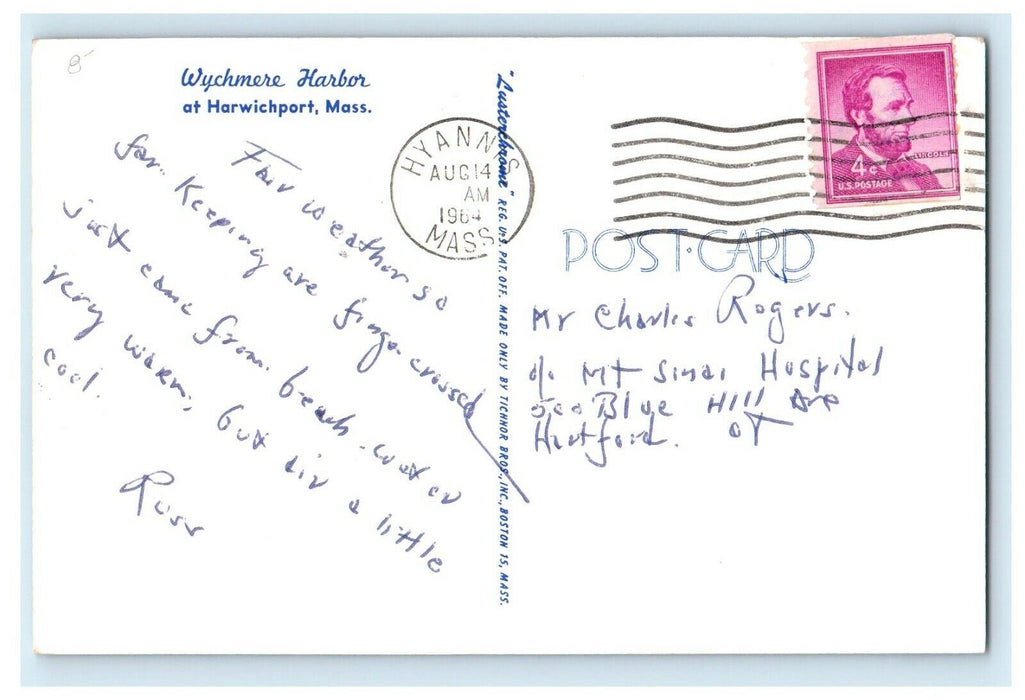 8
Wychmere Harbor
at Harwichport, Mass.
Fair weather so
far. Keeping are finge crossed
just came from beach. water
very warm, but air a little
cool.
Russ
HYANNIS
AUG 14
AM
1964
MASS
"Lusterchrome" REG. U.S. PAT. OFF. MADE ONLY BY TICHNOR BROS., INC., BOSTON 15, MASS.
4¢
LINCOLN
U.S. POSTAGE
POST·CARD
Mr Charles Rogers.
c/o Mt Sinai Hospital
500 Blue Hill Ave
Hartford. CT